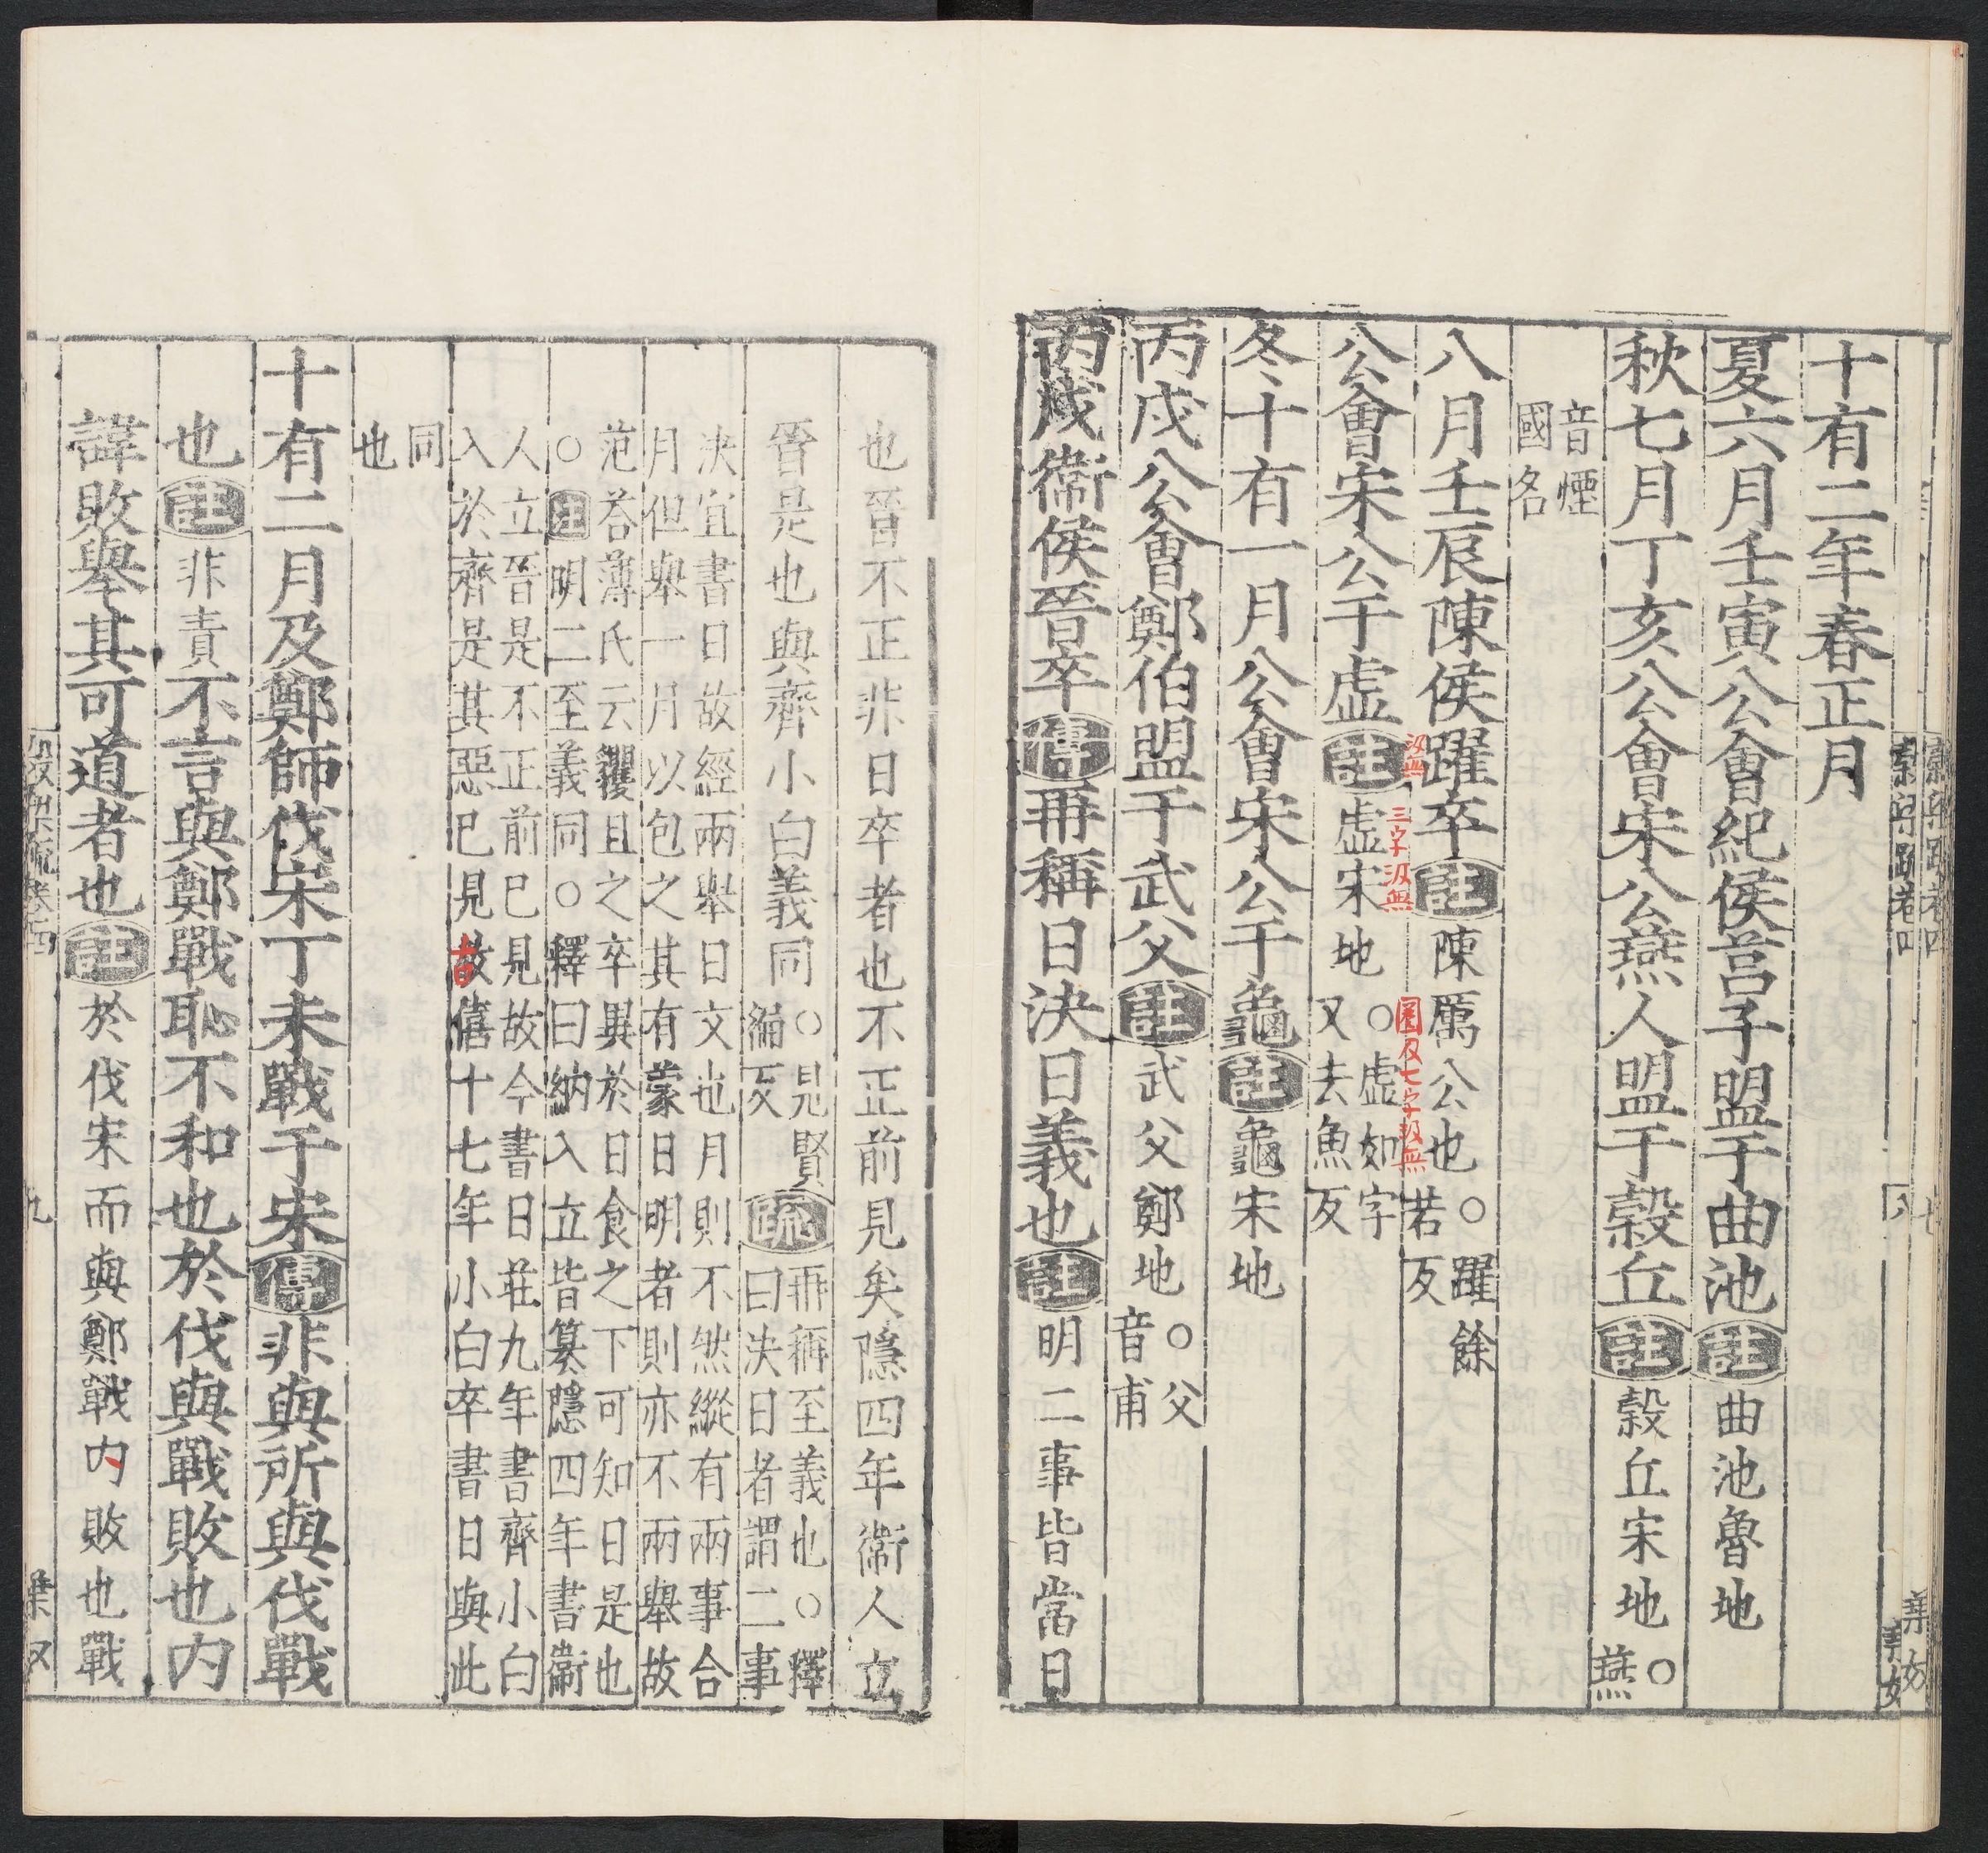 十有二年春正月
夏六月壬寅公會紀侯莒子盟于曲池註曲池魯地
秋七月丁亥公會宋公燕人盟于穀丘註穀丘宋地○燕
音煙
國名
八月壬辰陳侯躍卒註陳厲公也○躍餘
若反
公會宋公于虛註虛宋地○虛如字
又去魚反
冬十有一月公會宋公于龜註龜宋地
丙戌公會鄭伯盟于武父註武父鄭地○父
音甫
丙戌衛侯晉卒傳再稱日決日義也註明二事皆當日
也晉不正非日卒者也不正前見矣隱四年衛人立
晉是也與齊小白義同○見賢
徧反
疏再稱至義也○釋
曰決日者謂二事
決宜書日故經兩舉日文也月則不然縱有兩事合
月但舉一月以包之其有蒙日明者則亦不兩舉故
范荅薄氏云玃且之卒異於日食之下可知日是也
○註明二至義同○釋曰納入立皆篡隱四年書衛
人立晉是不正前已見故今書日莊九年書齊小白
入於齊是其惡已見故僖十七年小白卒書日與此
同
也
十有二月及鄭師伐宋丁未戰于宋傳非與所與伐戰
也註非責不言與鄭戰恥不和也於伐與戰敗也內
諱敗舉其可道者也註於伐宋而與鄭戰內敗也戰
汲無
三字汲無
圈及七字汲無